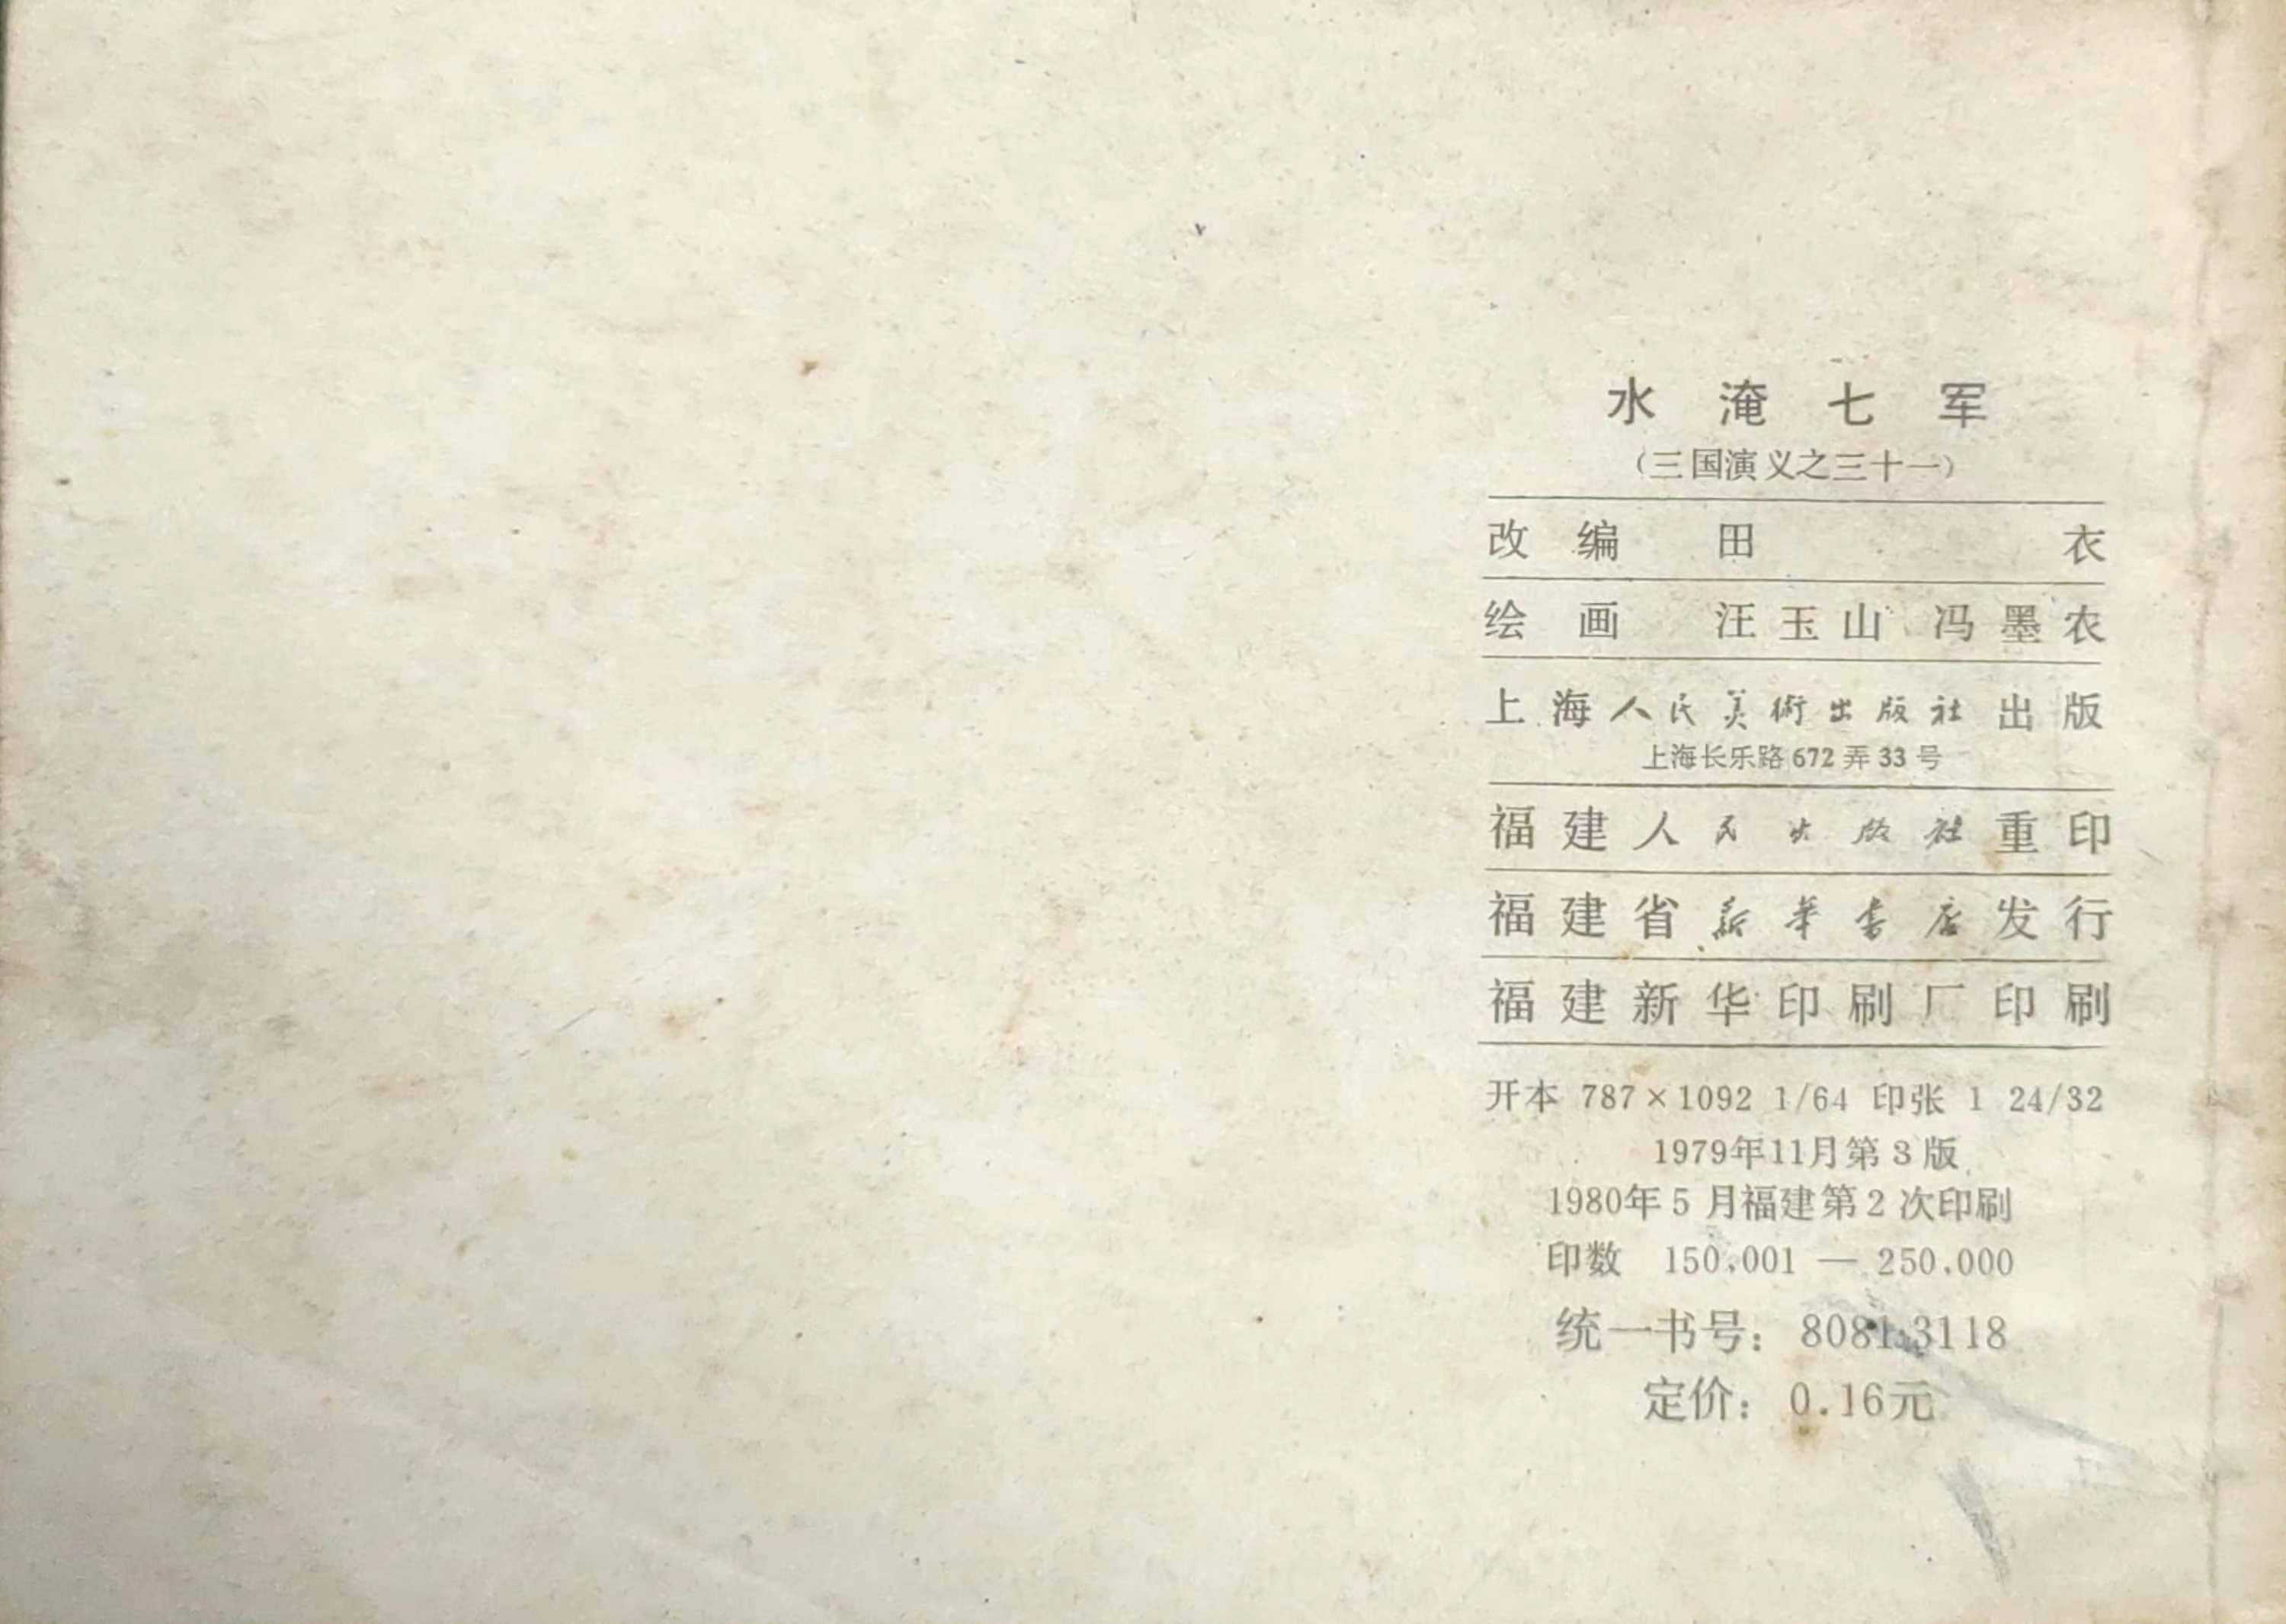 水淹七军
（三国演义之三十一）
改编 田衣
绘画 汪玉山 冯墨农
上海人民美術出版社出版
上海长乐路672弄33号
福建人民出版社重印
福建省新华书店发行
福建新华印刷厂印刷
开本 787×1092 1/64 印张 1 24/32
1979年11月第3版
1980年5月福建第2次印刷
印数 150,001 — 250,000
统一书号：8081·3118
定价：0.16元